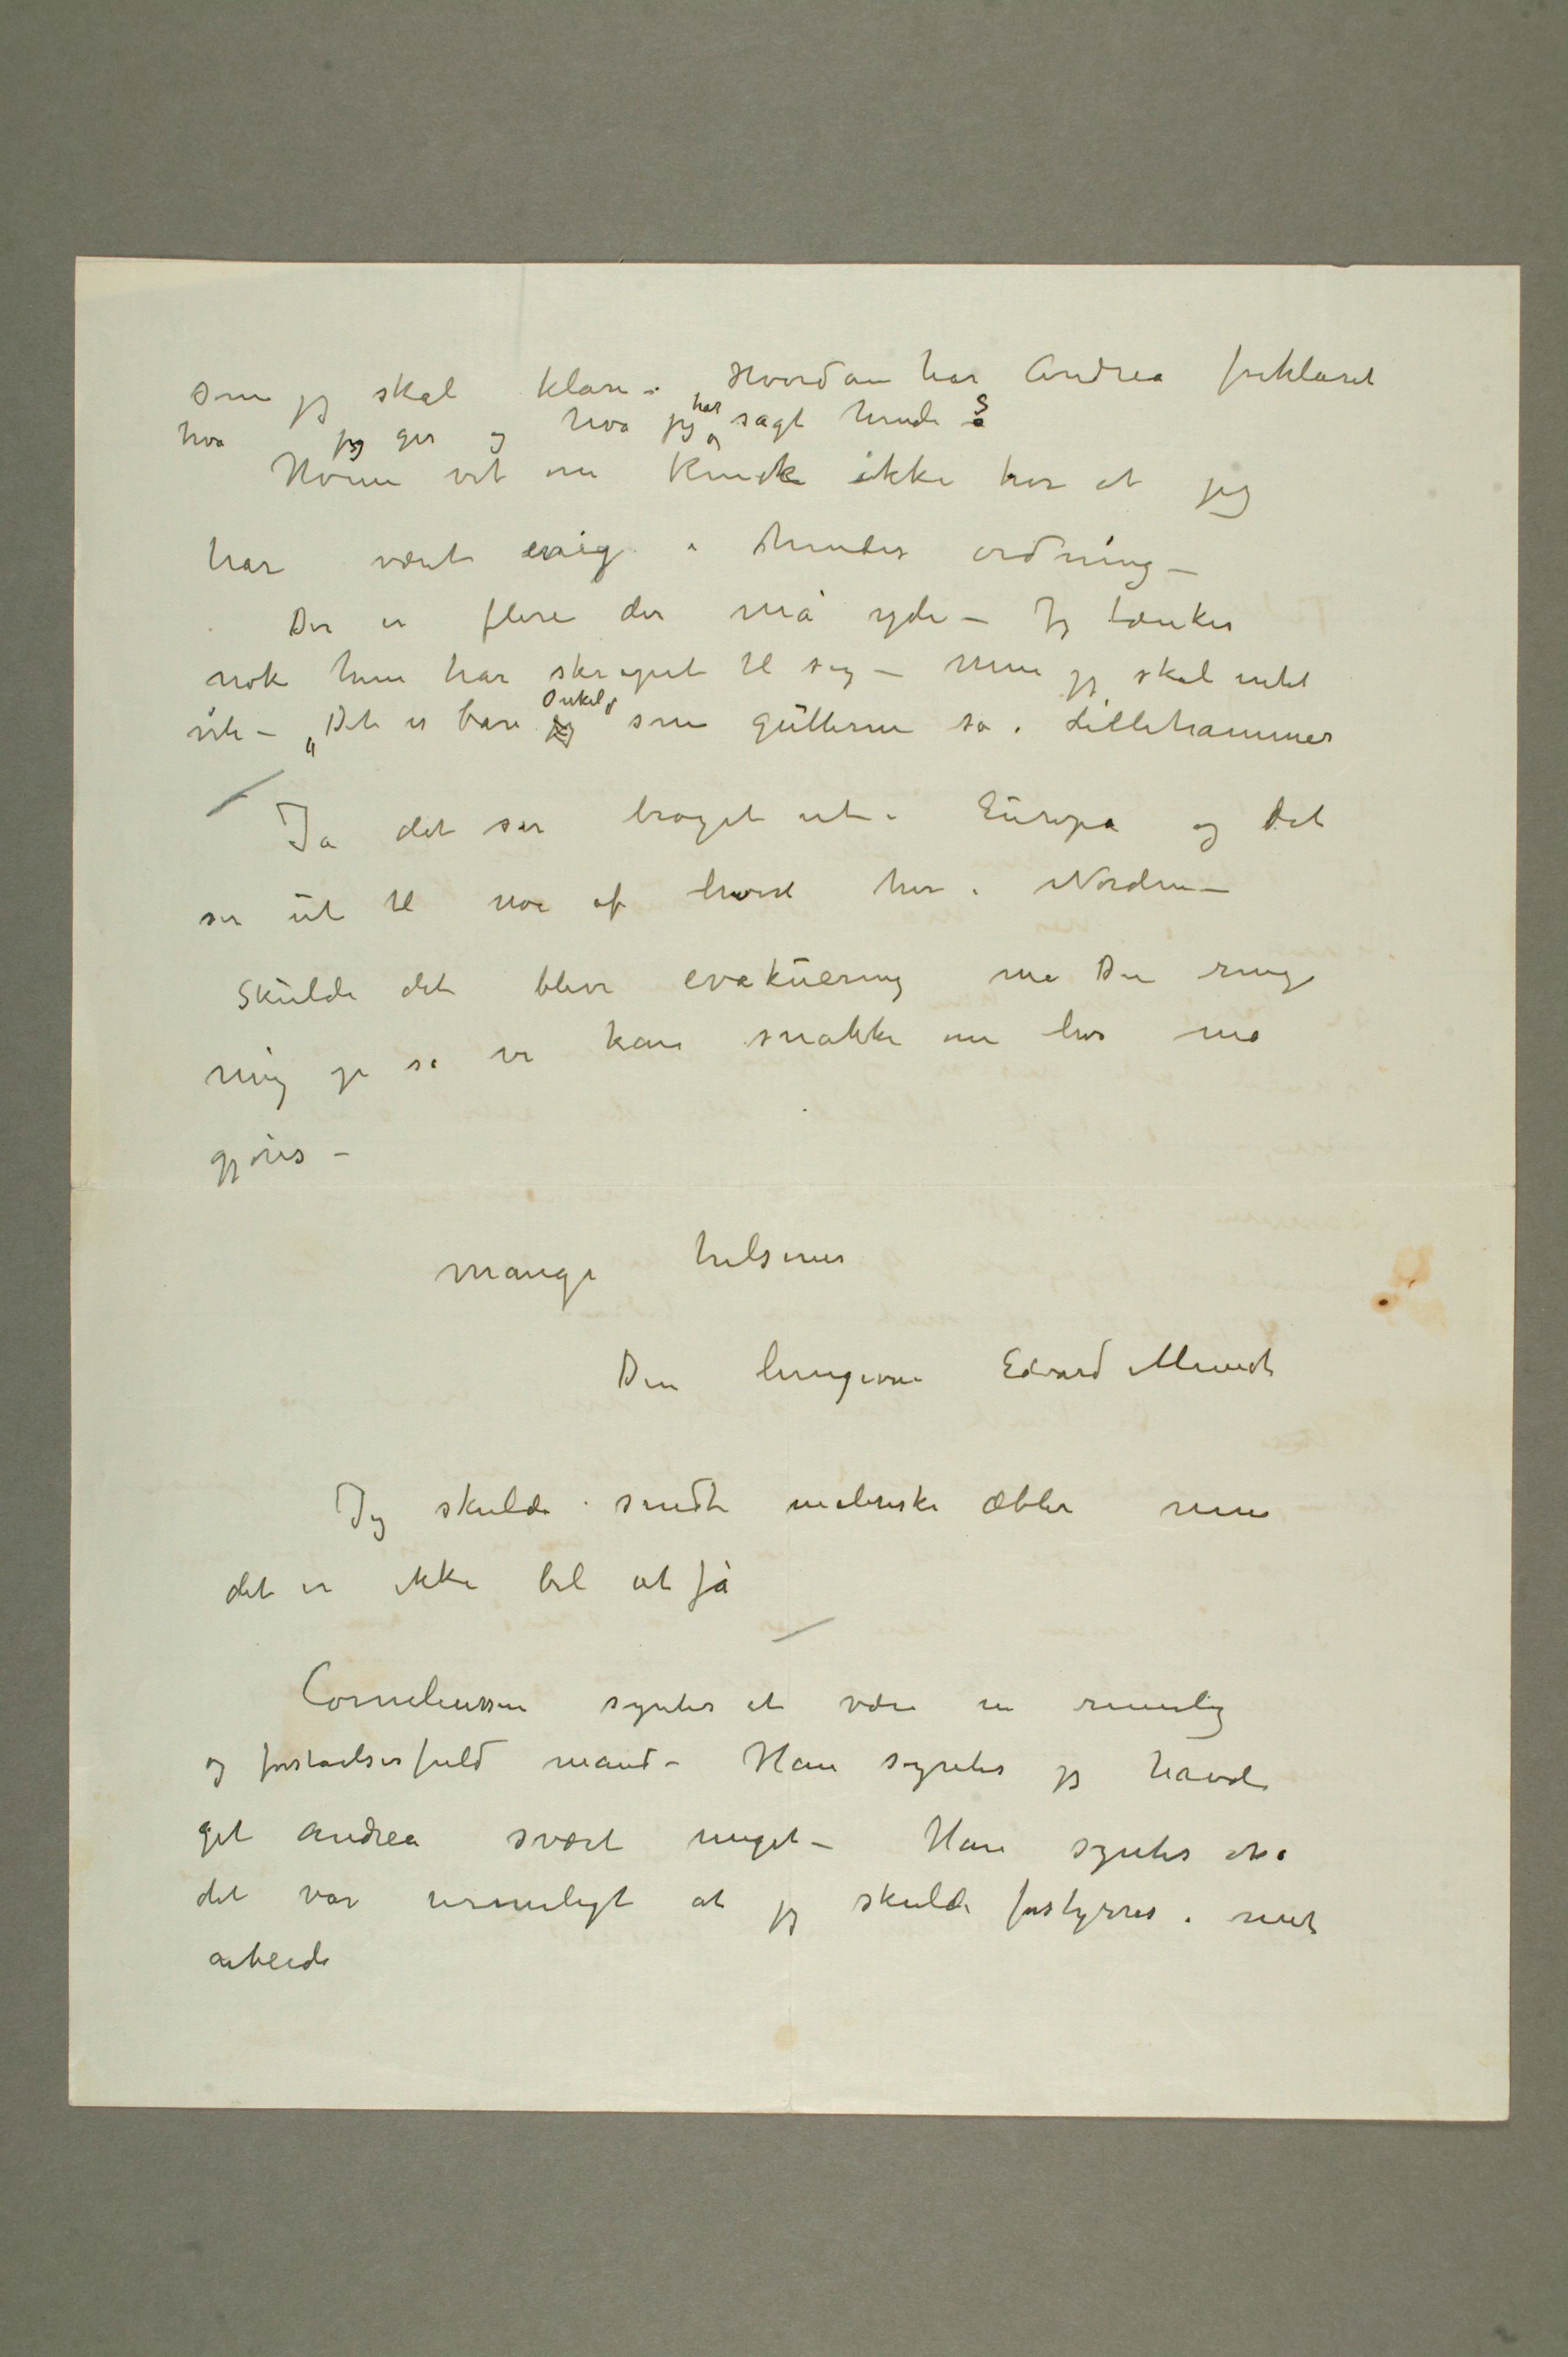 som jeg skal klare. Hvordan har Andrea forklaret
hva jeg ger og hva jeg har sagt hende?
Hvem vet om Kinck ikke tror at jeg
har vært enig i hendes ordning –
Der er flere der må yde – Jeg tænker
nok hun har skrapet til sig – Men jeg skal intet
vite – „Det er bare Onkel som guttene sa i Lillehammer
Ja det ser broget ut i Europa og det
ser ut til noe af hvert her i Norden –
Skulde det blive evakuering må Du ringe
mig op så vi kan snakke om hva må
gjøres –
mange hilsener
Din hengivne Edvard Munch
Jeg skulde sendt maleriske æbler men
det er ikke bil at få
Corneliussen syntes at være en rimelig
og forståelsesfuld mand – Han syntes jeg havde
get Andrea svært meget – Han syntes også
det var urimeligt at jeg skulde forstyrres i mit
arbeide